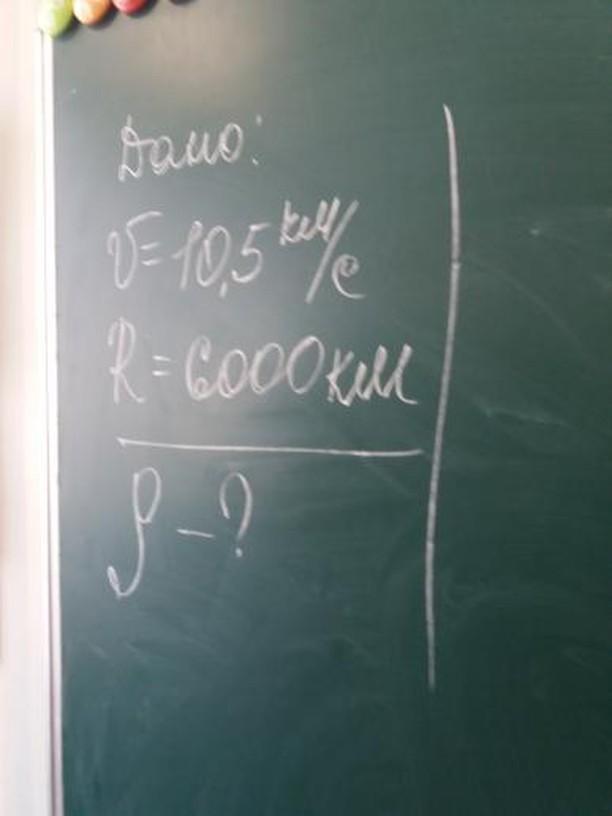 Дано:
v = 10,5 км/с
R = 6000 км
ρ - ?